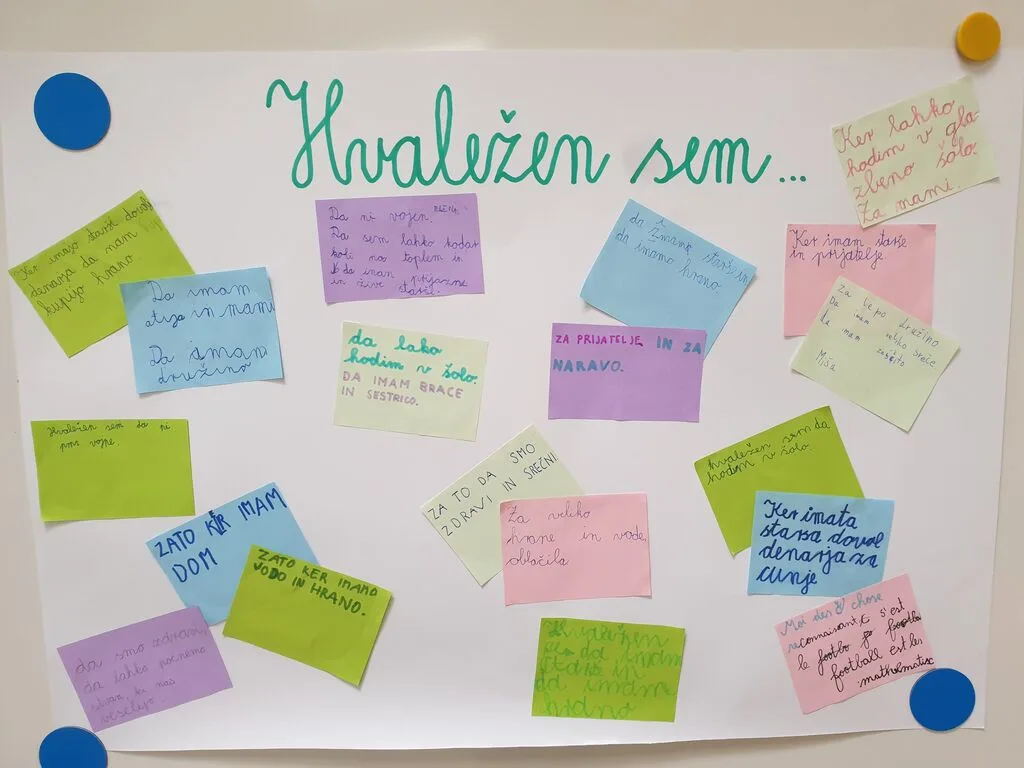 Hvaležen sem...
Ker lahko
hodim v gla-
zbeno šolo.
Za mami.
Ker imajo starši dovolj
denarja da nam
kupijo hrano
Da imam
atija in mami
Da imam
družino
Da ni vojen.
Da sem lahko kodar
koli na toplem in
da imam prijazne
in žive starše.
da
da imamo hrano.
Ker imam starše
in prijatelje.
Za
družino
Da imam veliko sreče
da imam zaščito
Miša
da lako
hodim v šolo.
DA IMAM BRACE
IN SESTRICO.
ZA PRIJATELJE IN ZA
NARAVO.
Hvaležen sem da ni
pms vojne.
ZA TO DA SMO
ZDRAVI IN SREČNI
hvaležen sem da
hodim v šolo.
ZATO KER IMAM
DOM
ZATO KER IMAMO
VODO IN HRANO.
Za veliko
hrane in vode,
oblačila
Ker imata
starša dovol
denarja za
cunje
da smo zdravi,
da lahko počnemo
stvari, ki nas
veselijo.
Hvaležen
sem da imam
starše in
da imamo
Moi des chose
reconnaisant, c's'est
le footbo
football est les
mathematix